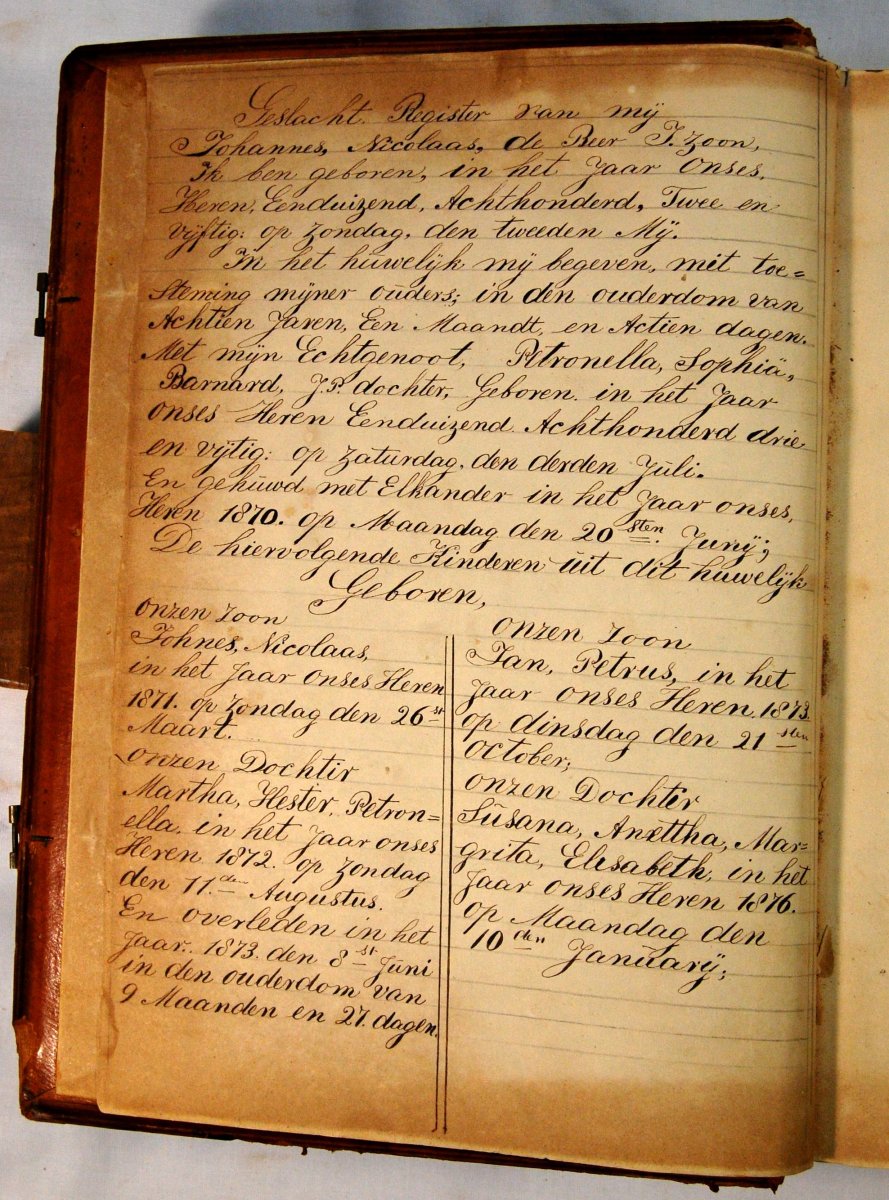 Geslacht. Register van mÿ
Johannes, Nicolaas, de Beer J. Zoon,
Ik ben geboren, in het Jaar Onses,
Heren, Eenduizend, Achthonderd, Twee en
vÿftig: op Zondag, den tweeden Mÿ.
In het huwelÿk mÿ begeven, mit toe=
steming mÿner ouders; in den ouderdom van
Achtien Jaren, Een Maandt, en Actien dagen.
Met mÿn Echtgenoot, Petronella, Sophia,
Barnard, J.P. dochter, Geboren in het Jaar
onses Heren Eenduizend Achthonderd drie
en vÿtig: op Zaturdag, den derden Juli.
En gehuwd met Elkander in het Jaar onses,
Heren 1870. op Maandag den 20 sten Junÿ;
De hiervolgende Kinderen uit dit huwelÿk
Geboren,
onzen Zoon
Johnes, Nicolaas,
in het Jaar onses Heren
1871. op Zondag den 26 st
Maart.
onzen Dochtir
Martha, Hester, Petron=
ella, in het Jaar onses
Heren 1872. op Zondag
den 11. den Augustus.
En overleden in het
Jaar. 1873. den 8 st Juni
in den ouderdom van
9 Maanden en 27. dagen.
onzen Zoon
Jan, Petrus, in het
Jaar onses Heren 1873.
op dinsdag den 21 sten
October;
onzen Dochtir
Susana, Anettha, Mar=
grita, Elisabeth, in het
Jaar onses Heren 1876.
op Maandag den
10 den Januarÿ;